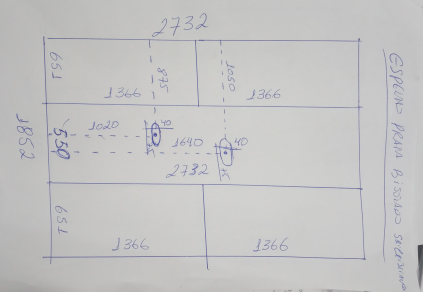 2732
ESPELHO PRATA BISOTADO
651
1366
875
1050
1366
1852
550
1020
40
1640
40
2732
651
1366
1366